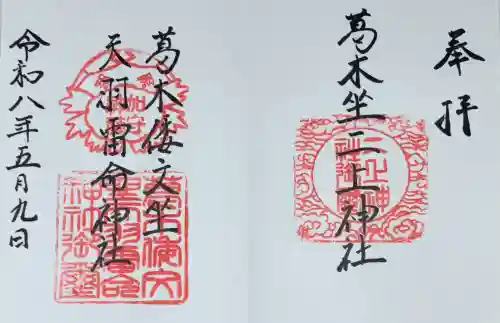 奉拝
葛木坐二上神社
葛木倭文坐
天羽雷命神社
令和八年五月九日